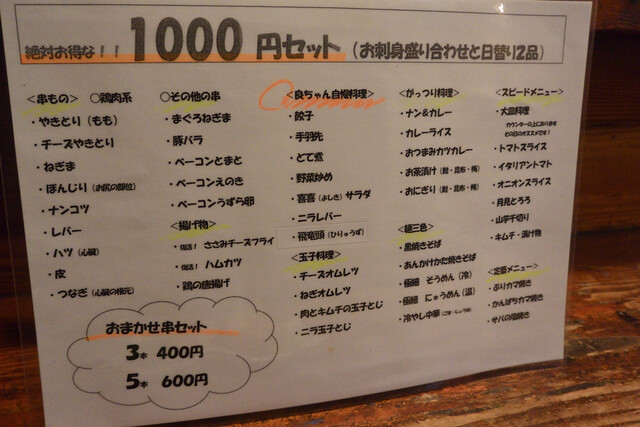 絶対お得な！！ 1000 円セット（お刺身盛り合わせと日替り2品）
<串もの> ○鶏肉系
・やきとり（もも）
・チーズやきとり
・ねぎま
・ぼんじり（お尻の部位）
・ナンコツ
・レバー
・ハツ（心臓）
・皮
・つなぎ（心臓の根元）
○その他の串
・まぐろねぎま
・豚バラ
・ベーコンとまと
・ベーコンえのき
・ベーコンうずら卵
<揚げ物>
・復活！ ささみチーズフライ
・復活！ ハムカツ
・鶏の唐揚げ
おまかせ串セット
3本 400円
5本 600円
<良ちゃん自慢料理>
・餃子
・手羽先
・どて煮
・野菜炒め
・喜喜（よしき）サラダ
・ニラレバー
・飛竜頭（ひりゅうず）
<玉子料理>
・チーズオムレツ
・ねぎオムレツ
・肉とキムチの玉子とじ
・ニラ玉子とじ
<がっつり料理>
・ナン&カレー
・カレーライス
・おつまみカツカレー
・お茶漬け（鮭・昆布・梅）
・おにぎり（鮭・昆布・梅）
<麺三色>
・黒焼きそば
・あんかけかた焼きそば
・極細 そうめん（冷）
・極細 にゅうめん（温）
・冷やし中華（ごま・しょうゆ）
<スピードメニュー>
・大皿料理
カウンターの上にあります
その日のオススメです！
・トマトスライス
・イタリアントマト
・オニオンスライス
・月見とろろ
・山芋千切り
・キムチ・漬け物
<定番メニュー>
・ぶりカマ焼き
・かんぱちカマ焼き
・サバの塩焼き